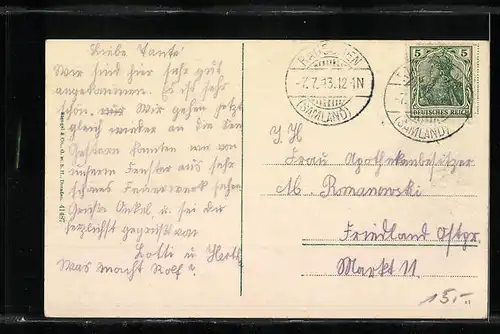 Liebe Tante
Wir sind hier sehr gut
angekommen. Es ist sehr
schön. Wir gehen jetzt
gleich wieder an die See
Gestern konnten wir von
unserem Fenster aus sehr
schönes Feuerwerk sehen
Grüße Onkel u. sei du
herzlichst gegrüßt von
Lotti u. Herth
Was macht Rolf?
& Co., G. m. b. H., Dresden. 41487
RAUSCHEN
-7.7.13.12-1N
(SAMLAND)
5 5
DEUTSCHES REICH
(SAMLAND)
I. H
Frau Apothekenbesitzer
M. Romanowski
Friedland Ostpr.
Markt 11.
15.-